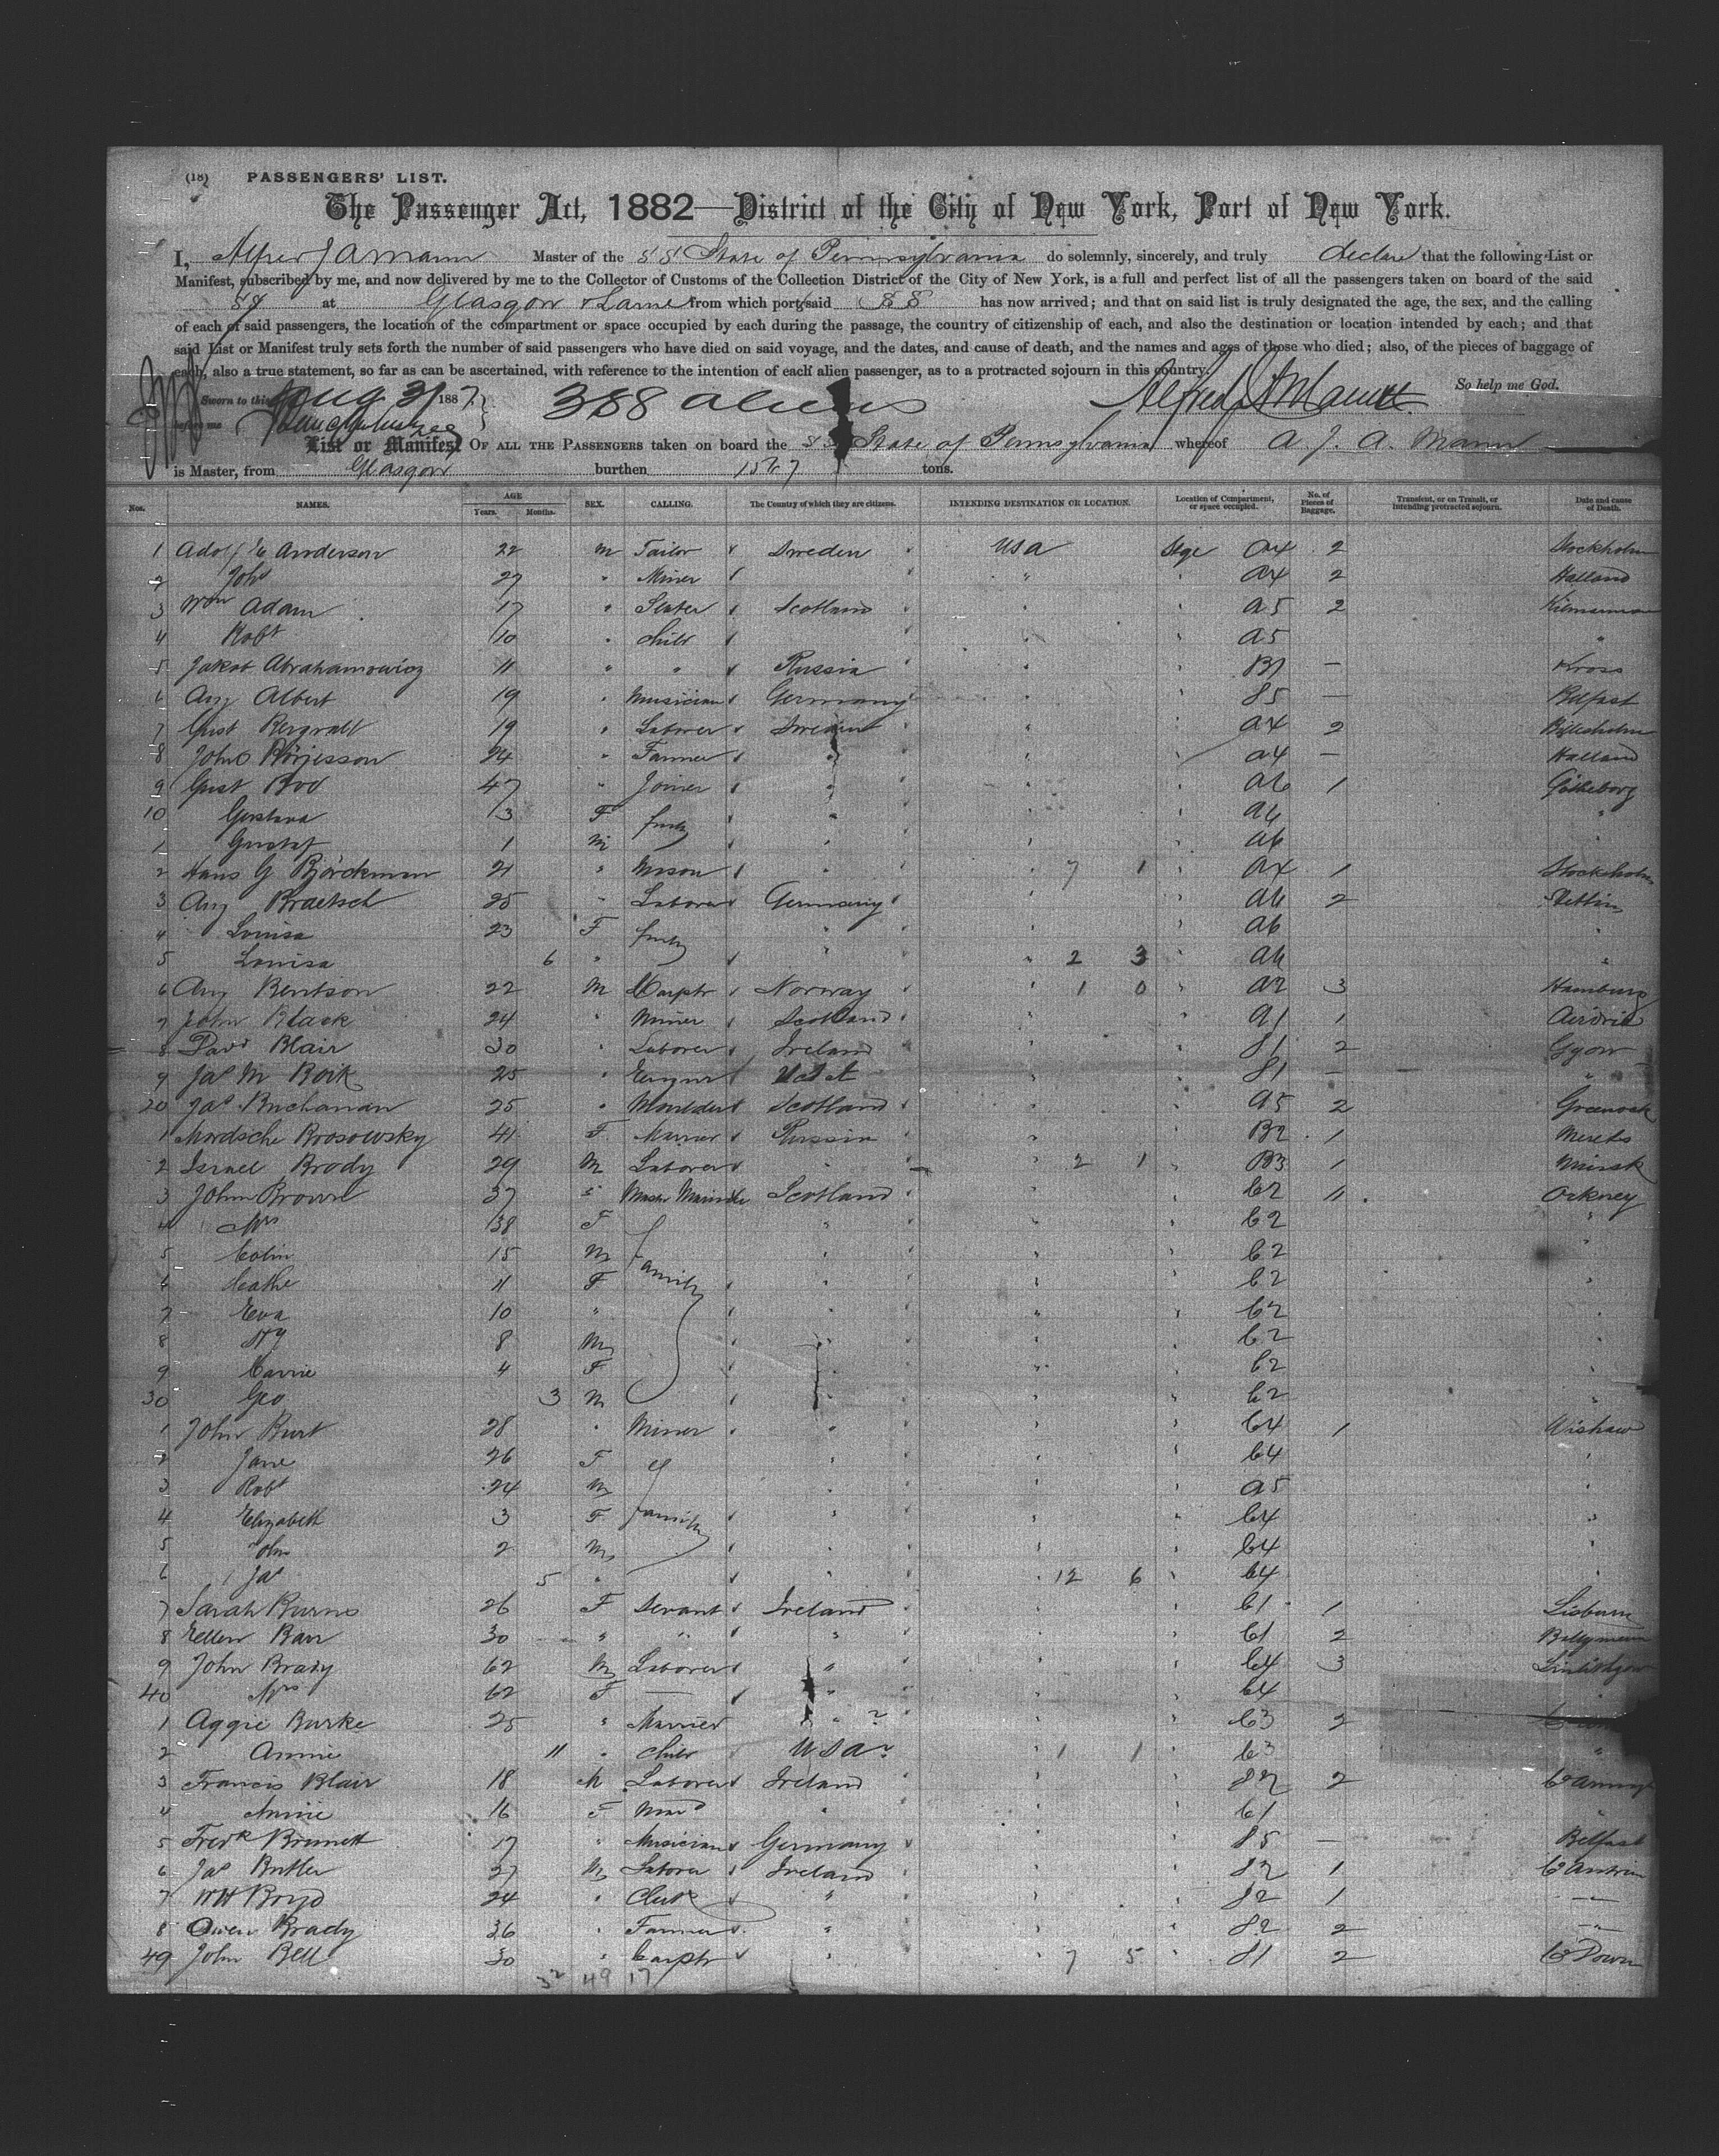 (18) PASSENGERS' LIST.
The Passenger Act, 1882—District of the City of New York, Port of New York.
I, Alfred J A Mann Master of the SS State of Pennsylvania do solemnly, sincerely, and truly declare that the following List or
Manifest, subscribed by me, and now delivered by me to the Collector of Customs of the Collection District of the City of New York, is a full and perfect list of all the passengers taken on board of the said
SS at Glasgow & Larne from which port said SS has now arrived; and that on said list is truly designated the age, the sex, and the calling
of each of said passengers, the location of the compartment or space occupied by each during the passage, the country of citizenship of each, and also the destination or location intended by each; and that
said List or Manifest truly sets forth the number of said passengers who have died on said voyage, and the dates, and cause of death, and the names and ages of those who died; also, of the pieces of baggage of
each, also a true statement, so far as can be ascertained, with reference to the intention of each alien passenger, as to a protracted sojourn in this country.
So help me God.
Sworn to this Aug 31 1887 388 aliens Alfred J A Mann
before me
List or Manifest OF ALL THE PASSENGERS taken on board the SS State of Pennsylvania whereof A. J. A. Mann
is Master, from Glasgow burthen tons.
Nos. NAMES. AGE Years. Months. SEX. CALLING. The Country of which they are citizens. INTENDING DESTINATION OR LOCATION. Location of Compartment, or space occupied. No. of Pieces of Baggage. Transient, or on Transit, or intending protracted sojourn. Date and cause of Death.
1 Adolf E Anderson 22 M Tailor Sweden USA Stge A4 2 Stockholm
2 John 27 " Miner " A4 2 Halland
3 Wm Adam 17 " Slater Scotland A5 2
4 Robt 10 " Child A5 "
5 Jakob Abrahamowicz 11 " " Russia B1 — Kross
6 Aug Albert 19 " Musician Germany 85 — Belfast
7 Gust 19 " Laborer Sweden A4 2 Billesholm
8 John Börjesson 24 " Farmer " A4 — Halland
9 Gust Boo 47 " Joiner " A6 1 Götheborg
10 Gustava 13 F family " A6 "
1 Gustaf 1 M " A6 "
2 Hans G Björckman 21 " Mason " 7 1 A4 1 Stockholm
3 Aug Braetsch 25 " Laborer Germany A6 2 Stettin
4 Louisa 23 F family " A6 "
5 Louisa 6 " " 2 3 A6 "
6 Aug Bentson 22 M Carptr Norway 1 0 A2 3 Hamburg
7 John Black 24 " Miner Scotland A1 1 Airdrie
8 David Blair 30 " Laborer Ireland 81 2
9 Jas M Boik 25 " 81 — "
20 Jas Buchanan 25 " Moulder Scotland A5 2 Greenock
1 Mordsche Brosowsky 41 F Married Russia B2 1
2 Israel Brody 29 M Laborer " 2 1 B3 1 Minsk
3 John Brown 37 " Master Mariner Scotland C2 11 Orkney
4 Mrs 38 F Family " C2 "
5 Colin 15 M " C2 "
6 Cathe 11 F " C2 "
7 Eva 10 " " C2 "
8 Hy 8 M " C2 "
9 Carrie 4 F " C2 "
30 Geo 3 M " C2 "
1 John Burt 28 " Miner " C4 1 Wishaw
2 Jane 26 F " C4 "
3 Robt 24 M Family " A5 "
4 Elizabeth 3 F " C4 "
5 John 2 M " C4 "
6 Jas 5 " " 12 6 C4 "
7 Sarah Burns 26 F Servant Ireland C1 1 Lisburn
8 Ellen Barr 30 " " " C1 2 Ballymena
9 John Brady 62 M Laborer " C4 3 Linlithgow
40 Mrs 62 F — " C4 "
1 Aggie Burke 25 " Married " ? C3 2
2 Annie 11 " Child USA? 1 1 C3 "
3 Francis Blair 18 M Laborer Ireland 82 2 Co Armagh
4 Annie 16 F " C1 "
5 Fredk Brunett 17 " Musician Germany 85 — Belfast
6 Jas Butler 27 M Laborer Ireland 82 1 Co Antrim
7 WH Boyd 24 " Clerk " 82 1 "
8 Owen Brady 36 " Farmer " 82 2 "
49 John Bell 30 " Carptr " 7 5 81 2 Co Down
32 49 17